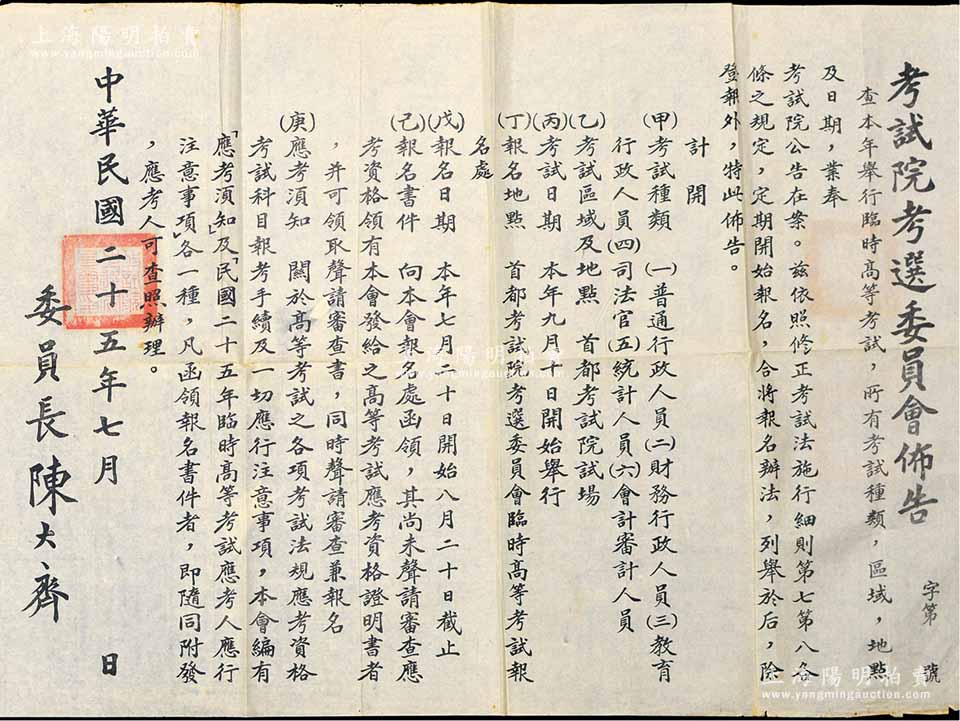 上海陽明拍賣
www.yangmingauction.com
考試院考選委員會佈告
字第　號
查本年舉行臨時高等考試，所有考試種類，區域，地點
及日期，業奉
考試院公告在案。茲依照修正考試法施行細則第七第八各
條之規定，定期開始報名，合將報名辦法，列舉於后，除
登報外，特此佈告。
計開
(甲)考試種類　(一)普通行政人員(二)財務行政人員(三)教育
行政人員(四)司法官(五)統計人員(六)會計審計人員
(乙)考試區域及地點　首都考試院試場
(丙)考試日期　本年九月十日開始舉行
(丁)報名地點　首都考試院考選委員會臨時高等考試報
名處
(戊)報名日期　本年七月二十日開始八月二十日截止
(己)報名書件　向本會報名處函領，其尚未聲請審查應
考資格領有本會發給之高等考試應考資格證明書者
，并可領取聲請審查書，同時聲請審查兼報名
(庚)應考須知　關於高等考試之各項考試法規應考資格
考試科目報考手續及一切應行注意事項，本會編有
「應考須知」及「民國二十五年臨時高等考試應考人應行
注意事項」各一種，凡函領報名書件者，即隨同附發
，應考人可查照辦理。
中華民國二十五年七月　日
委員長陳大齊
上海陽明拍賣
www.yangmingauction.com
上海陽明拍賣
www.yangmingauction.com